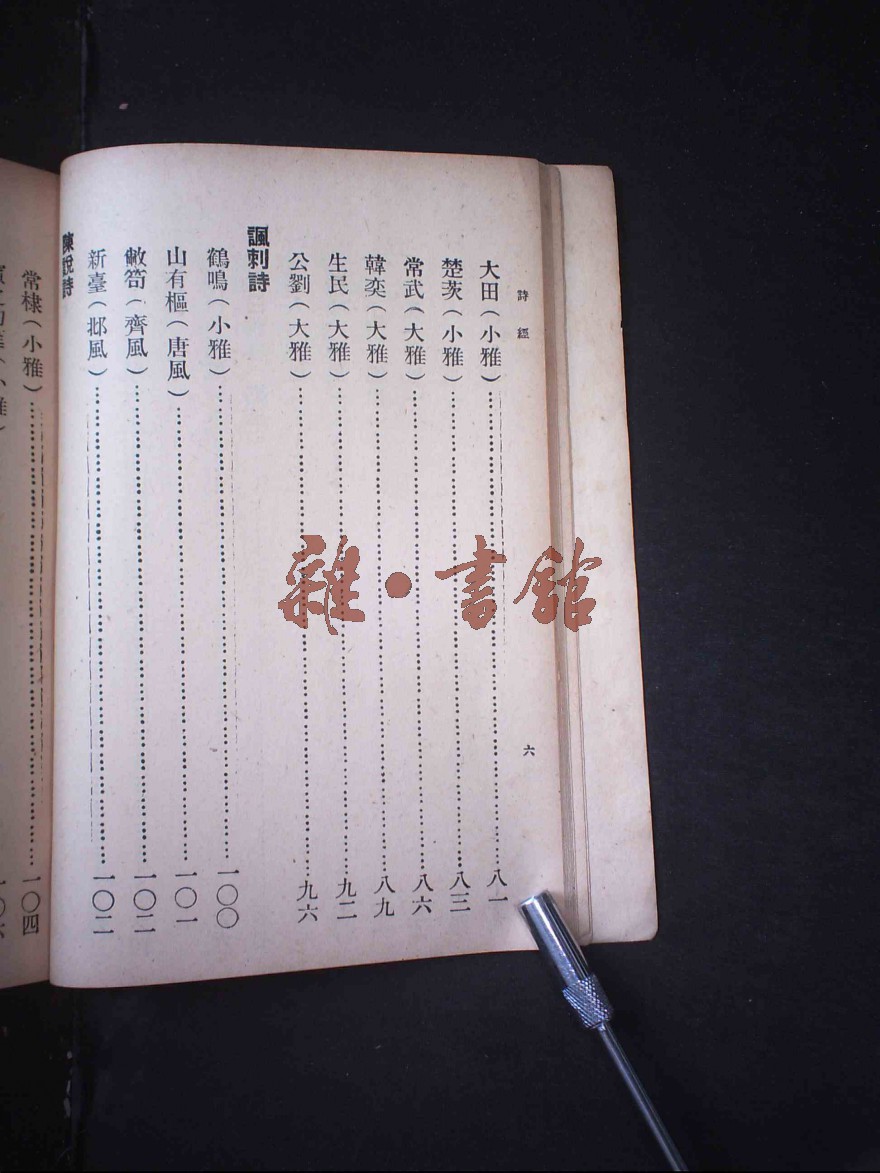 詩經
六
大田(小雅)……八一
楚茨(小雅)……八三
常武(大雅)……八六
韓奕(大雅)……八九
生民(大雅)……九二
公劉(大雅)……九六
諷刺詩
鶴鳴(小雅)……一〇〇
山有樞(唐風)……一〇一
敝笱(齊風)……一〇二
新臺(邶風)……一〇二
陳說詩
常棣(小雅)……一〇四
雜·書館